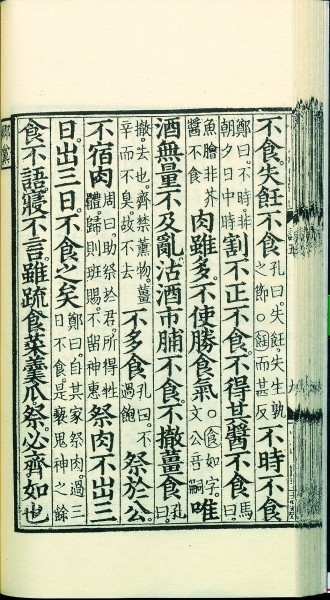 不食。失飪不食孔曰。失飪。失生孰之節○飪而甚反不時不食
鄭曰。不時。非朝夕日中時割不正不食。不得其醬不食。馬曰。
魚膾非芥醬不食肉雖多。不使勝食氣○食如字。文公音嗣唯
酒無量。不及亂。沽酒市脯不食。不撤薑食。孔曰。
撤。去也。齊禁薰物。薑辛而不臭。故不去不多食孔曰。不過飽祭於公。
不宿肉周曰。助祭於君。所得牲體。歸則班賜。不留神惠祭肉不出三
日。出三日。不食之矣鄭曰。自其家祭肉。過三日不食。是褻鬼神之餘
食不語。寢不言。雖疏食菜羹瓜祭。必齊如也